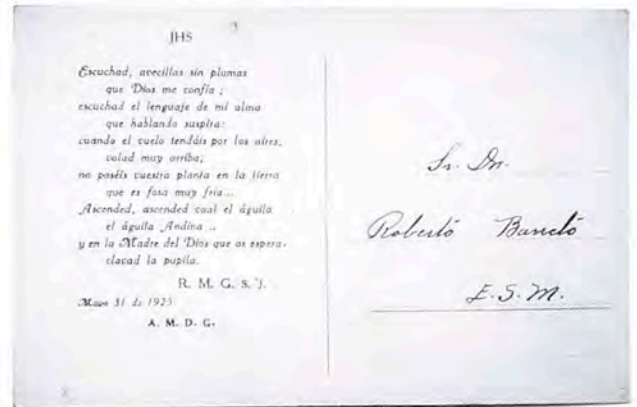 JHS
Escuchad, avecillas sin plumas
que Dios me confía ;
escuchad el lenguaje de mi alma
que hablando suspira:
cuando el vuelo tendáis por los aires,
volad muy arriba;
no poséis vuestra planta en la tierra
que es fosa muy fría...
Ascended, ascended cual el águila
el águila Andina ..
y en la Madre del Dios que os espera-
clavad la pupila.
R. M. G. S. J.
Mayo 31 de 1925
A. M. D. G.
Sr. Dn.
Roberto Barreto
E. S. M.